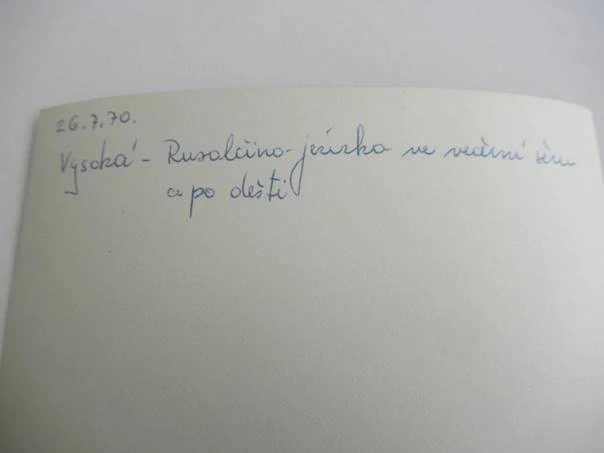 26.7.70.
Vysoká - Rusalčino-jezírko ve večerní šeru
a po dešti